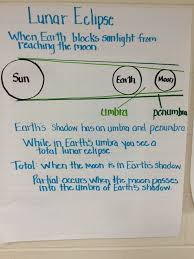 Lunar Eclipse
When Earth blocks sunlight from
reaching the moon.
Sun
Earth
Moon
umbra
penumbra
Earth's shadow has an umbra and penumbra
While in Earth's umbra you see a
total lunar eclipse
Total: When the moon is in Earth's shadow
Partial: occurs when the moon passes
into the umbra of Earth's shadow.